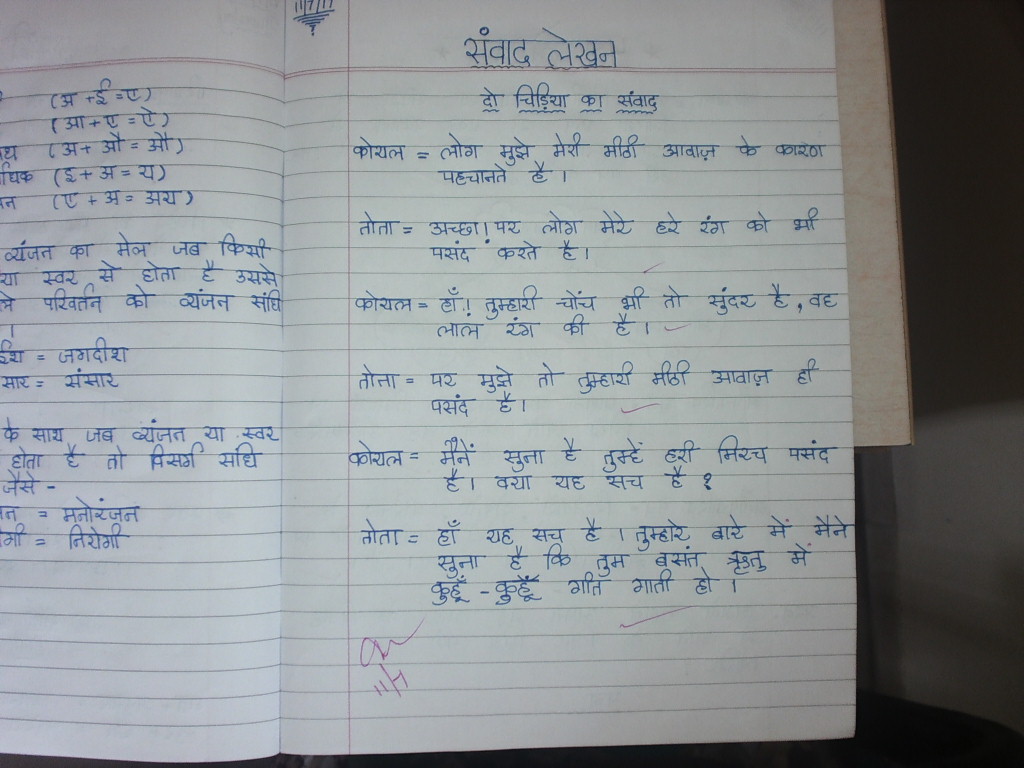 (अ + ई = ए)
(आ + ए = ऐ)
(अ + औ = औ)
(इ + अ = य)
(ए + अ = अय)
व्यंजन का मेल जब किसी
या स्वर से होता है उससे
परिवर्तन को व्यंजन संधि
= जगदीश
सार = संसार
के साथ जब व्यंजन या स्वर
होता है तो विसर्ग संधि
जैसे -
= मनोरंजन
= निरोगी
संवाद लेखन
दो चिड़िया का संवाद
कोयल = लोग मुझे मेरी मीठी आवाज़ के कारण
पहचानते है ।
तोता = अच्छा ! पर लोग मेरे हरे रंग को भी
पसंद करते है ।
कोयल = हाँ ! तुम्हारी चोंच भी तो सुंदर है , वह
लाल रंग की है ।
तोता = पर मुझे तो तुम्हारी मीठी आवाज़ ही
पसंद है ।
कोयल = मैनें सुना है तुम्हें हरी मिरच पसंद
है । क्या यह सच है ?
तोता = हाँ यह सच है । तुम्हारे बारे में मैने
सुना है कि तुम बसंत ऋतु में
कुहूँ - कुहूँ गीत गाती हो ।